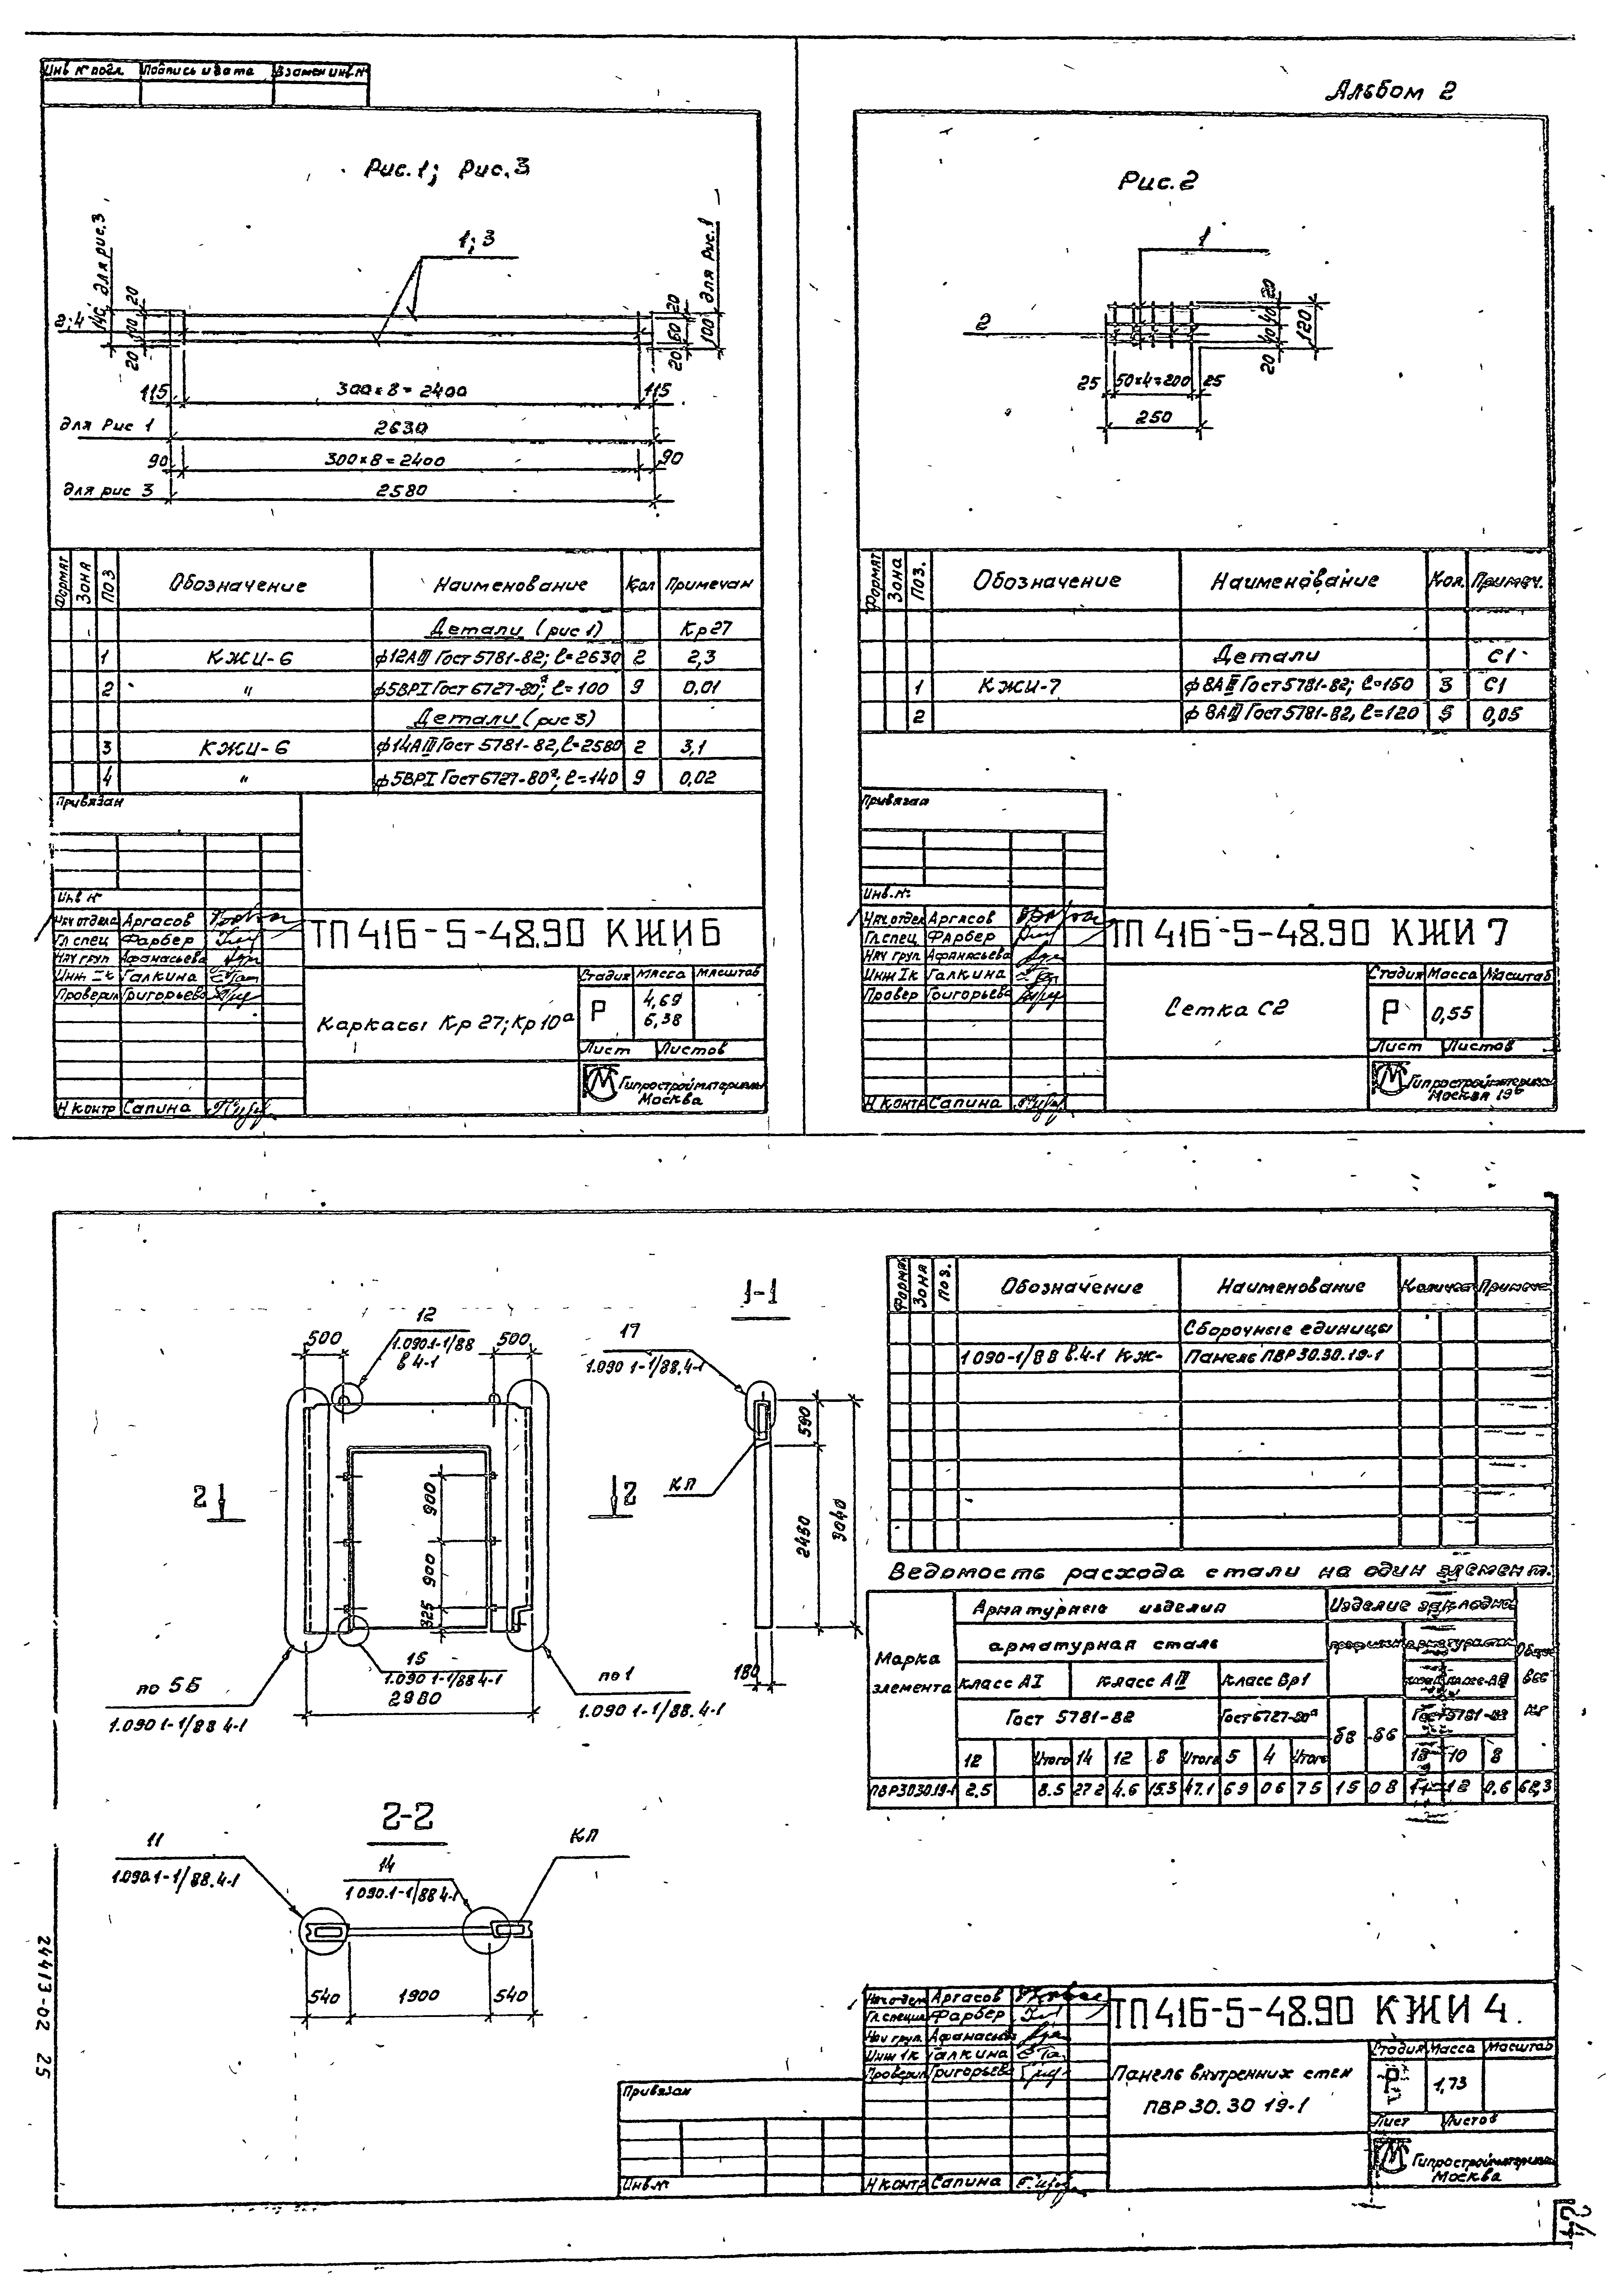 Инв № подл Подпись и дата Взамен инв №
Альбом 2
Рис. 1; Рис. 3
1; 3
2; 4
140 для рис. 3
20
20
20
60
20
100 для Рис. 1
115 300×8=2400 115
для Рис 1 2630
90 300×8=2400 90
для рис 3 2580
Формат Зона Поз Обозначение Наименование Кол Примечан
Детали (рис 1) Кр27
1 КЖИ-6 ф12АIII Гост 5781-82; ℓ=2630 2 2,3
2 " ф5ВРI Гост 6727-80*; ℓ=100 9 0,01
Детали (рис 3)
3 КЖИ-6 ф14АIII Гост 5781-82, ℓ=2580 2 3,1
4 " ф5ВРI Гост 6727-80*; ℓ=140 9 0,02
Привязан
Инв №
Нач отдела Аргасов
Гл спец Фарбер
Нач груп Афанасьева
Инж Iк Галкина
Проверил Григорьева
Н контр Сапина
ТП 416-5-48.90 КЖИ 6
Каркасы Кр 27; Кр 10а
Стадия Масса Масштаб
Р 4,69
6,38
Лист Листов
Гипростройматериалы
Москва
Рис. 2
1
2
20
40
40
20
120
25 50×4=200 25
250
Формат Зона Поз. Обозначение Наименование Кол. Примеч.
Детали С1
1 КЖИ-7 ф 8АIII Гост 5781-82; ℓ=150 3 С1
2 ф 8АIII Гост 5781-82, ℓ=120 5 0,05
Привязан
Инв. №
Нач. отдел Аргасов
Гл. спец Фарбер
Нач груп Афанасьева
Инж Iк Галкина
Провер Григорьева
Н контр Сапина
ТП 416-5-48.90 КЖИ 7
Сетка С2
Стадия Масса Масштаб
Р 0,55
Лист Листов
Гипростройматериалы
Москва
1-1
12
1.090.1-1/88
в 4-1
500 500
17
1.090 1-1/88.4-1
590
2450
3040
КП
180
2 2
900
900
325
15
1.090 1-1/88 4-1
2980
по 5Б
1.090 1-1/88 4-1
по 1
1.090 1-1/88. 4-1
2-2
11
1.090.1-1/88.4-1
14
1 090.1-1/88 4-1
КП
540 1900 540
Зона Поз. Обозначение Наименование
Сборочные единицы
1 090-1/88 в.4-1 КЖ- Панель ПВР 30.30.19-1
Ведомость расхода стали на один элемент.
Марка элемента
Арматурные изделия
арматурная сталь
Класс АI Класс АIII Класс Вр1
Гост 5781-82 Гост 6727-80* Гост 5781-82
12 Итого 14 12 8 Итого 5 4 Итого δ8 δ6 10 8
ПВР3030.19-1 2.5 8.5 27 2 4.6 15.3 47.1 6 9 0 6 7 5 1 5 0 8 0.6 62,3
Аргасов
Гл. специл Фарбер
Нач груп. Афанасьева
Инж 1к Галкина
Проверил Григорьева
Н контр Сапина
ТП 416-5-48.90 КЖИ 4.
Панель внутренних стен
ПВР 30. 30 19-1
Стадия Масса Масштаб
Р 1,73
Лист Листов
Гипростройматериалы
Москва
Привязан
Инв. №
24413-02 25